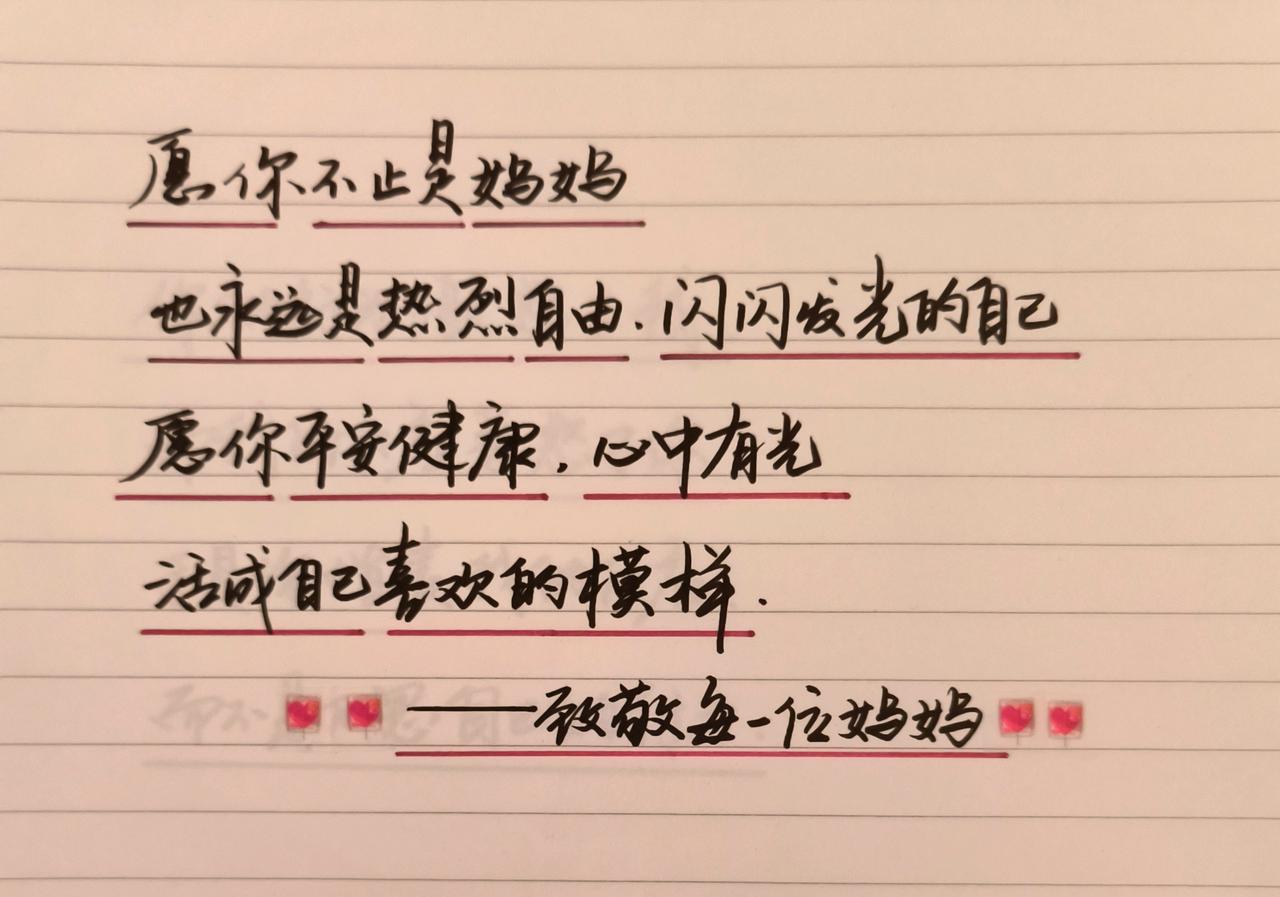 愿你不止是妈妈
也永远是热烈自由.闪闪发光的自己
愿你平安健康.心中有光
活成自己喜欢的模样.
——致敬每一位妈妈